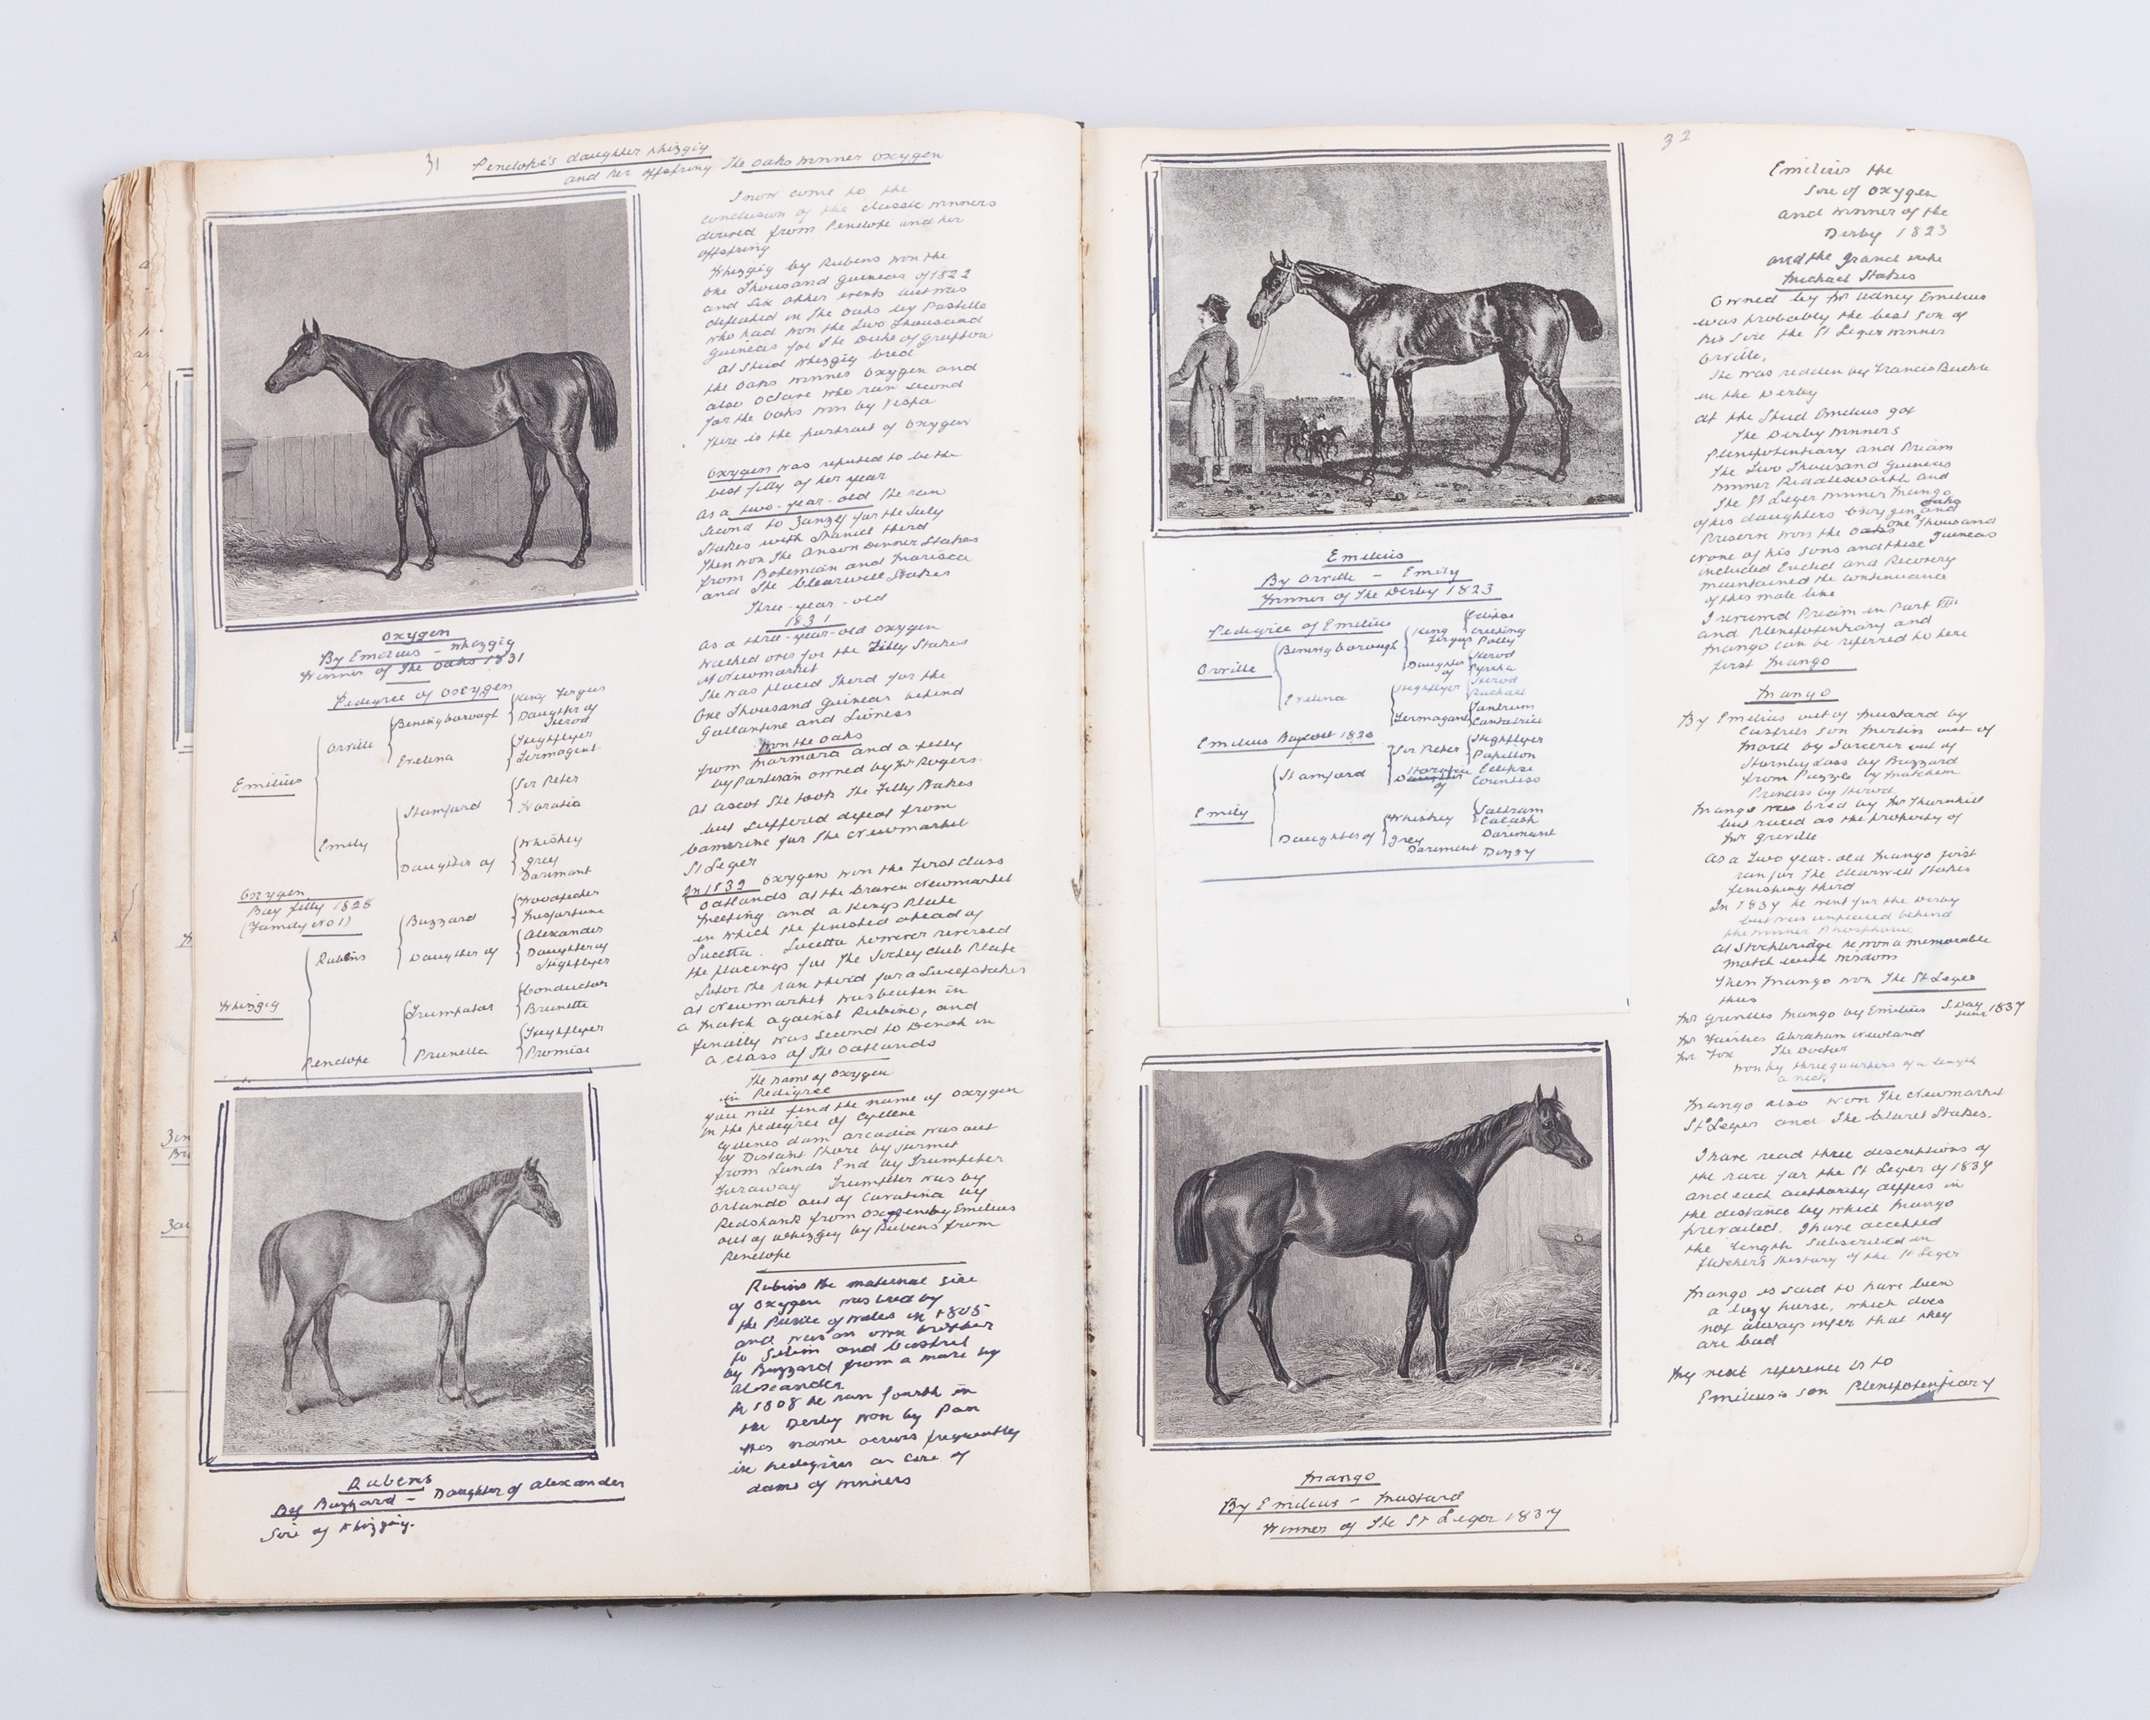 31
Penelope's daughter Whizgig
and her offspring The Oaks winner Oxygen
Oxygen
By Emilius - Whizgig
Winner of The Oaks 1831
Pedigree of Oxygen
Emilius
Orville
Beningborough
King Fergus
Daughter of
Herod
Evelina
Highflyer
Termagent
Emily
Stamford
Sir Peter
Horatia
Daughter of
Whiskey
Grey
Dorimant
Oxygen
Bay filly 1828
(Family No 1)
Whizgig
Rubens
Buzzard
Woodpecker
Misfortune
Daughter of
Alexander
Daughter of
Highflyer
Penelope
Trumpator
Conductor
Brunette
Prunella
Highflyer
Promise
Rubens
By Buzzard - Daughter of Alexander
Sire of Whizgig.
I now come to the
conclusion of the classic winners
derived from Penelope and her
offspring
Whizgig by Rubens won the
One Thousand Guineas of 1822
and six other events but was
defeated in The Oaks by Pastille
who had won the Two Thousand
Guineas for The Duke of Grafton
At Stud Whizgig bred
the Oaks winner Oxygen and
also Octave who ran second
for the Oaks won by Vespa
There is the portrait of Oxygen
Oxygen was reputed to be the
best filly of her year
As a two-year-old she ran
second to Zanga for the July
Stakes with Spaniel third
Then won The Anson Dinner Stakes
from Bohemian and Marisca
and The Clearwell Stakes
Three-year-old
1831
As a three-year-old Oxygen
walked over for the Filly Stakes
at Newmarket
She was placed third for the
One Thousand Guineas behind
Gallantine and Lioness
Won the Oaks
from Marmora and a filly
by Partisan owned by Mr Rogers
At Ascot she took The Filly Stakes
but suffered defeat from
Camarine for The Newmarket
St Leger
In 1832 Oxygen won the first class
Oatlands at the Craven Newmarket
Meeting and a Kings Plate
in which she finished ahead of
Lucetta. Lucetta however reversed
the placings for The Jockey Club Plate
Later she ran third for a Sweepstakes
at Newmarket was beaten in
a match against Rubini, and
finally was second to Denah in
a class of The Oatlands
The name of Oxygen
in Pedigree
You will find the name of Oxygen
in the pedigree of Cyllene
Cyllenes dam Arcadia was out
of Distant Shore by Hermit
from Lands End by Trumpeter
Faraway Trumpeter was by
Orlando out of Cavatina by
Redshank from Oxygen by Emilius
out of Whizgig by Rubens from
Penelope
Rubens the maternal sire
of Oxygen was bred by
the Prince of Wales in 1805
and was an own brother
to Selim and Castrel
by Buzzard from a mare by
Alexander
In 1808 he ran fourth in
the Derby won by Pan
His name occurs frequently
in pedigrees as sire of
dams of winners
32
Emilius
By Orville - Emily
Winner of The Derby 1823
Pedigree of Emilius
Orville
Beningborough
King
Fergus
Eclipse
Creeping
Polly
Daughter
of
Herod
Pyrrha
Evelina
Highflyer
Herod
Rachael
Termagant
Tantrum
Cantatrice
Emilius Bay colt 1820
Emily
Stamford
Sir Peter
Highflyer
Papillon
Horatia
Daughter
of
Eclipse
Countess
Daughter of
Whiskey
Saltram
Calash
Grey
Dorimant
Dorimant
Dizzy
Mango
By Emilius - Mustard
Winner of The St Leger 1837
Emilius the
Sire of Oxygen
and winner of the
Derby 1823
and the Grand Duke
Michael Stakes
Owned by Mr Udney Emilius
was probably the best son of
his sire the St Leger winner
Orville.
He was ridden by Francis Buckle
in the Derby
At the Stud Emilius got
The Derby winners
Plenipotentiary and Priam
The Two Thousand Guineas
winner Riddlesworth and
The St Leger winner Mango
Of his daughters Oxygen and
Preserve won the Oaks
Oaks
One Thousand
Guineas
None of his sons and these
included Euclid and Recovery
maintained the continuance
of this male line
I reviewed Priam in Part VIII
and Plenipotentiary and
Mango can be referred to here
first Mango
Mango
By Emilius out of Mustard by
Castrels son Merlin out of
Morel by Sorcerer out of
Hornby Lass by Buzzard
from Puzzle by Matchem
Princess by Herod
Mango was bred by Mr Thornhill
but raced as the property of
Mr Greville
As a Two year-old Mango first
ran for The Clearwell Stakes
finishing third
In 1837 he went for the Derby
but was unplaced behind
the winner Phosphorus
At Stockbridge he won a memorable
match with Wisdom
Then Mango won The St Leger
thus
Mr Grevilles Mango by Emilius S. Day
Junr 1837
Mr Fairlies Abraham Newland
Mr Fox The Doctor
won by three quarters of a length
a neck
Mango also won The Newmarket
St Leger and The Claret Stakes.
I have read three descriptions of
the race for the St Leger of 1837
and each authority differs in
the distance by which Mango
prevailed. I have accepted
the length subscribed in
Fletchers History of the St Leger
Mango is said to have been
a lazy horse, which does
not always infer that they
are bad
My next reference is to
Emilius's son Plenipotentiary